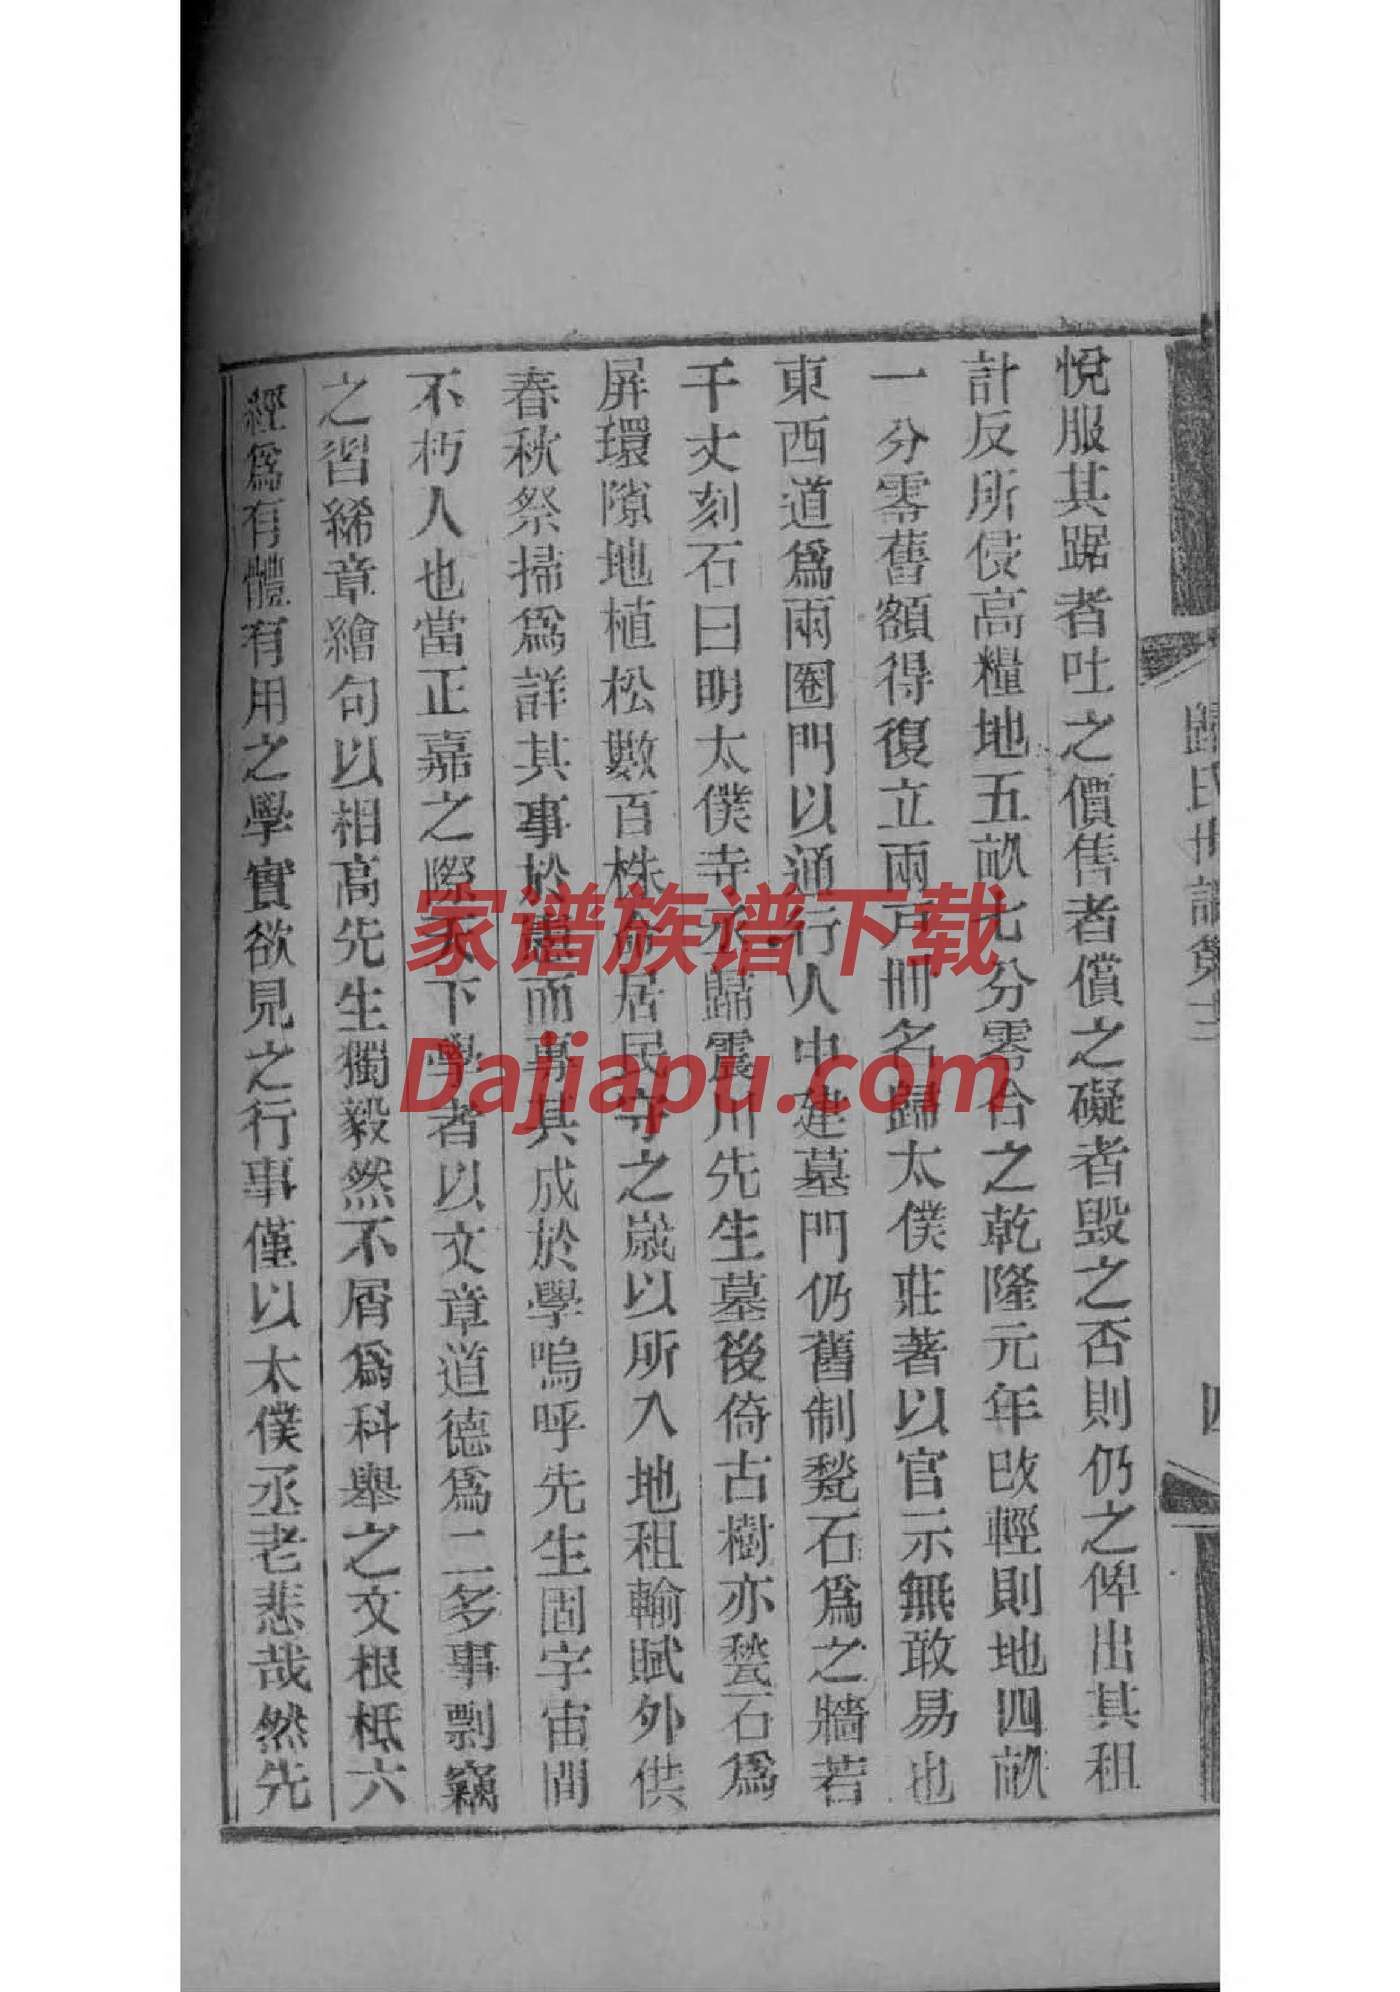 悅服其踞者吐之價售者償之礙者毀之否則仍之俾出其租
計反所侵高糧地五畝七分零合之乾隆元年改輕則地四畝
一分零舊額得復立兩戶冊名歸太僕莊著以官示無敢易也
東西道爲兩圈門以通行人中建墓門仍舊制甃石爲之牆若
干丈刻石曰明太僕寺丞歸震川先生墓後倚古樹亦甃石爲
屏環隙地植松數百株命居民守之歲以所入地租輸賦外供
春秋祭掃爲詳其事於憲而專其成於學嗚呼先生固宇宙間
不朽人也當正嘉之際天下學者以文章道德爲二多事剽竊
之習絺章繪句以相高先生獨毅然不屑爲科舉之文根柢六
經爲有體有用之學實欲見之行事僅以太僕丞老悲哉然先
歸氏世譜
四
家谱族谱下载
Dajiapu.com